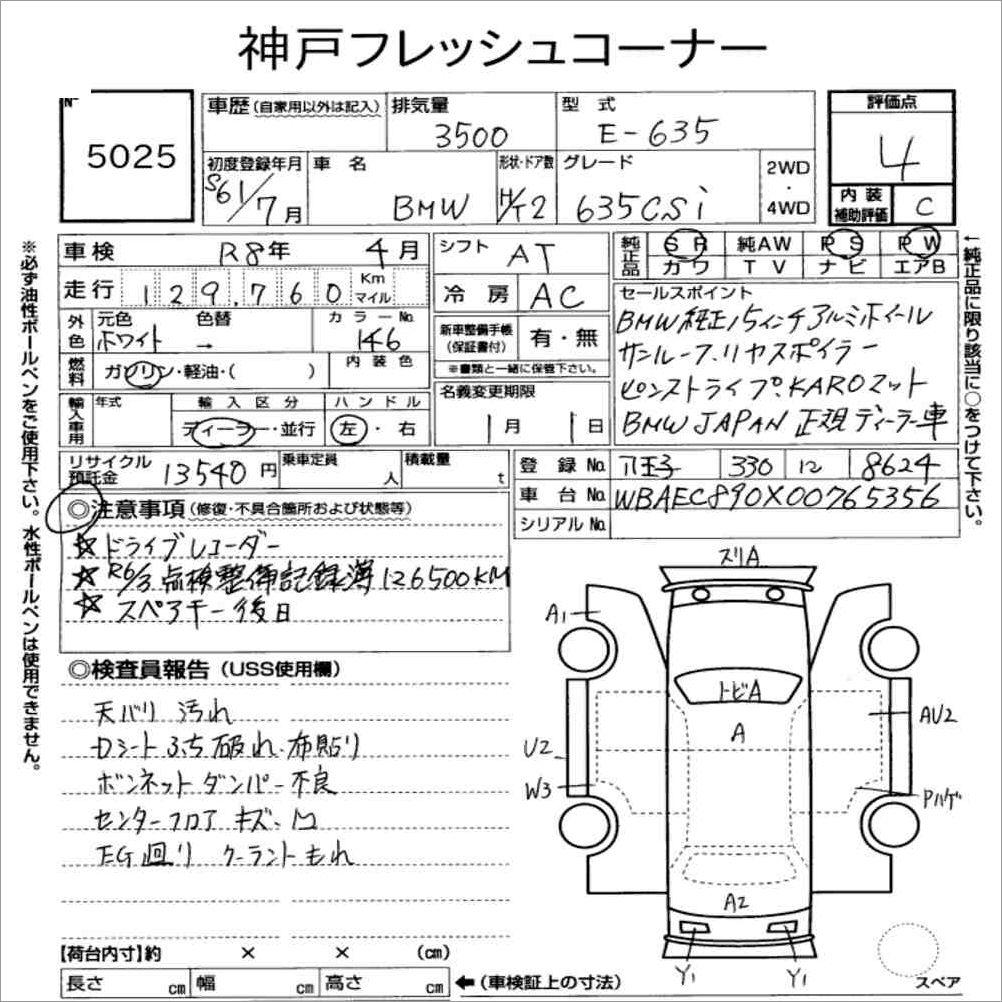 神戸フレッシュコーナー
No
5025
車歴(自家用以外は記入)
排気量
3500
型 式
E-635
評価点
4
内装補助評価 C
初度登録年月
S61/7月
車 名
BMW
形状・ドア数
H/T2
グレード
635CSi
2WD・4WD
車検 R8年 4月
走行 129,760 Km マイル
外色 元色 色替 カラーNo.
ホワイト → 146
燃料 ガソリン・軽油・( ) 内装色
輸入車用 年式 輸入区分 ハンドル
ディーラー・並行 左・右
シフト AT
冷房 AC
新車整備手帳(保証書付) 有・無
※書類と一緒に保管下さい。
名義変更期限
1月 1日
純正品 SR 純AW PS PW
カワ TV ナビ エアB
セールスポイント
BMW純正15インチアルミホイール
サンルーフ.リヤスポイラー
ピンストライプ.KAROマット
BMW JAPAN 正規ディーラー車
リサイクル預託金 13540円
乗車定員 人
積載量 t
登録No. 八王子 330 ひ 8624
車台No. WBAEC890X00765356
シリアルNo.
◎注意事項(修復・不具合箇所および状態等)
☆ドライブレコーダー
☆R6/3点検整備記録簿126500KM
☆スペアキー後日
◎検査員報告(USS使用欄)
天バリ 汚れ
Dシートふち破れ.布貼り
ボンネットダンパー不良
センターフロア キズ.凹
EG廻り クーラントもれ
スリA
A1
トビA
A
AU2
U2
W3
Pハゲ
A2
Y1
Y1
スペア
【荷台内寸】約 × × (cm)
長さ cm 幅 cm 高さ cm ←(車検証上の寸法)
※必ず油性ボールペンをご使用下さい。水性ボールペンは使用できません。
←純正品に限り該当に○をつけて下さい。